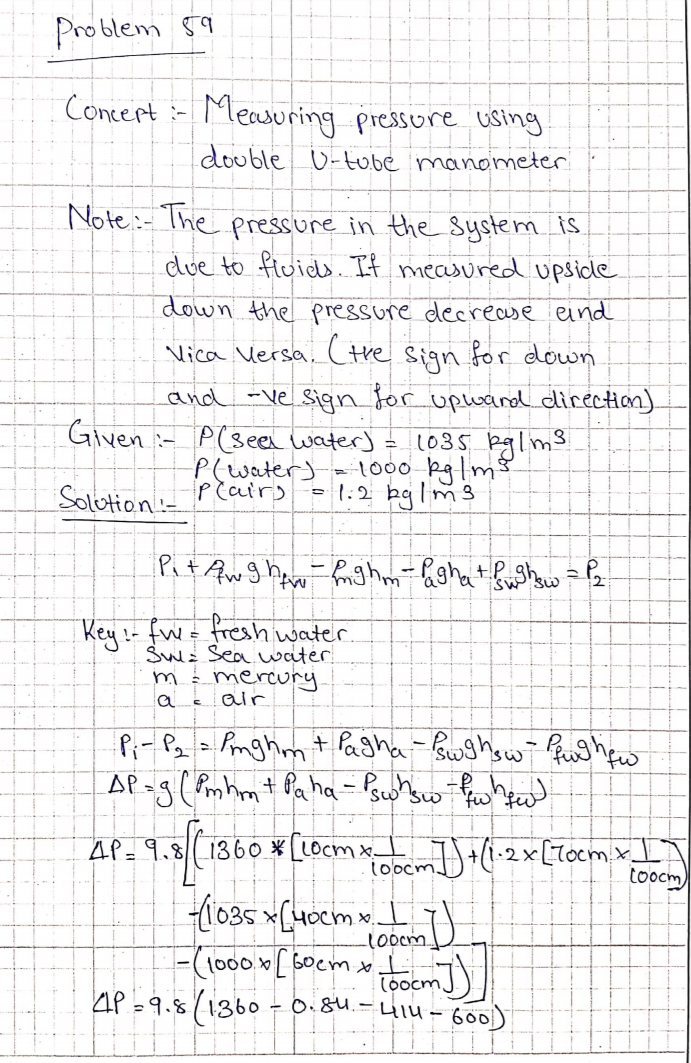 Problem 59
Concept :- Measuring pressure using
double U-tube manometer
Note:- The pressure in the system is
due to fluids. If measured upside
down the pressure decrease and
Vica Versa. (+ve sign for down
and -ve sign for upward direction)
Given :- ρ(sea water) = 1035 kg/m3
ρ(water) = 1000 kg/m3
ρ(air) = 1.2 kg/m3
Solution :-
P₁ + ρfw g hfw - ρm g hm - ρa g ha + ρsw g hsw = P₂
Key :- fw = fresh water
sw = sea water
m = mercury
a = air
P₁ - P₂ = ρm g hm + ρa g ha - ρsw g hsw - ρfw g hfw
ΔP = g (ρm hm + ρa ha - ρsw hsw - ρfw hfw)
ΔP = 9.8[(1360 * [10cm x 1/100cm]) + (1.2 x [70cm x 1/100cm])
-(1035 x [40cm x 1/100cm])
-(1000 x [60cm x 1/100cm])]
ΔP = 9.8 (1360 - 0.84 - 414 - 600)